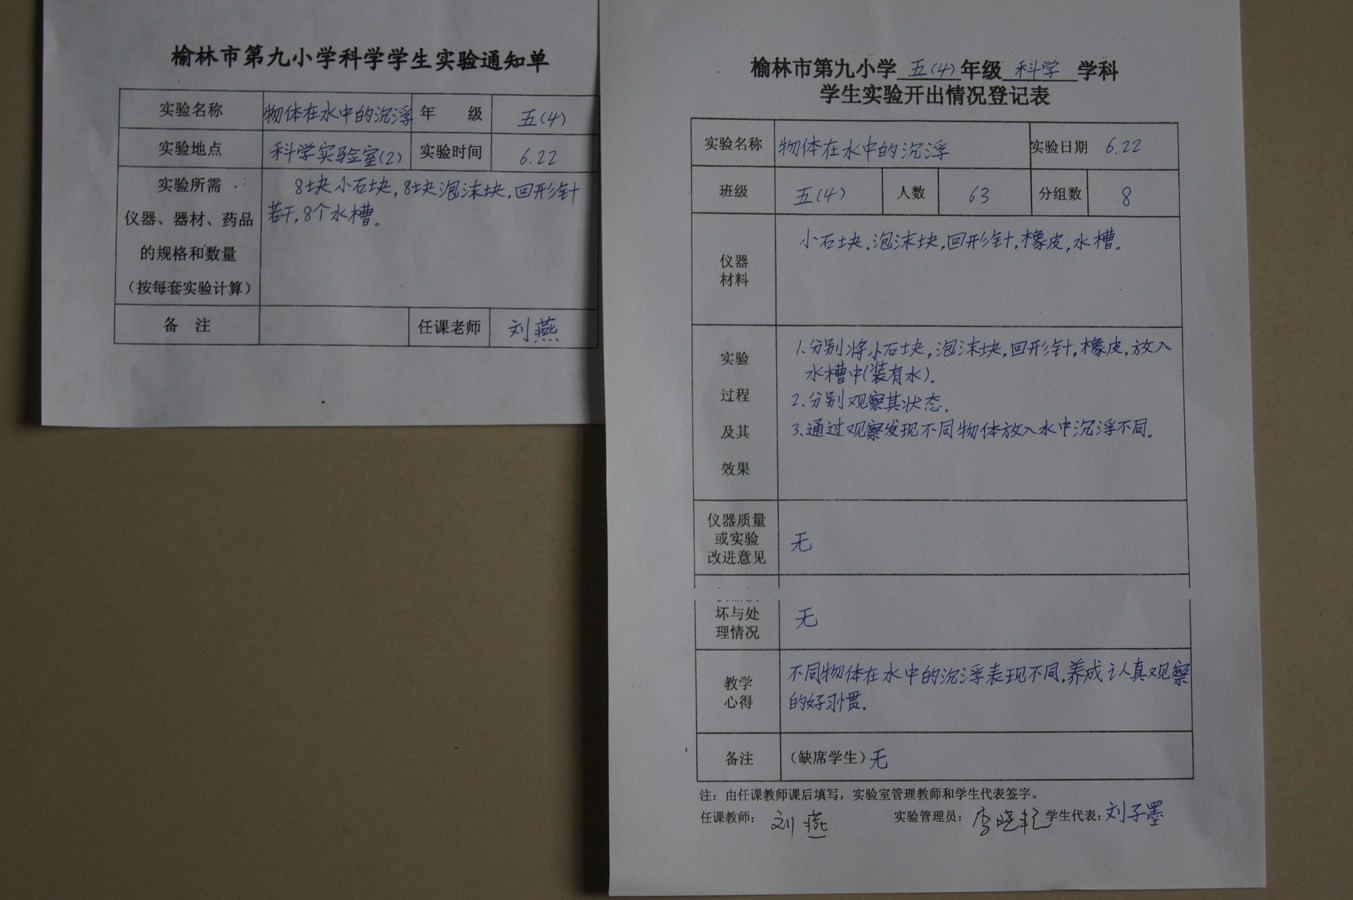 榆林市第九小学科学学生实验通知单
实验名称 物体在水中的沉浮 年 级 五(4)
实验地点 科学实验室(2) 实验时间 6.22
实验所需
仪器、器材、药品
的规格和数量
（按每套实验计算）
8块小石块,8块泡沫块,回形针
若干,8个水槽。
备 注 任课老师 刘燕
榆林市第九小学五(4)年级科学学科
学生实验开出情况登记表
实验名称 物体在水中的沉浮 实验日期 6.22
班级 五(4) 人数 63 分组数 8
仪器
材料
小石块,泡沫块,回形针,橡皮,水槽。
实验
过程
及其
效果
1.分别将小石块,泡沫块,回形针,橡皮,放入
水槽中(装有水)。
2.分别观察其状态。
3.通过观察发现不同物体放入水中沉浮不同。
仪器质量
或实验
改进意见
无
坏与处
理情况
无
教学
心得
不同物体在水中的沉浮表现不同,养成认真观察
的好习惯。
备注 （缺席学生）无
注：由任课教师课后填写，实验室管理教师和学生代表签字。
任课教师： 刘燕 实验管理员： 李晓 学生代表: 刘子墨